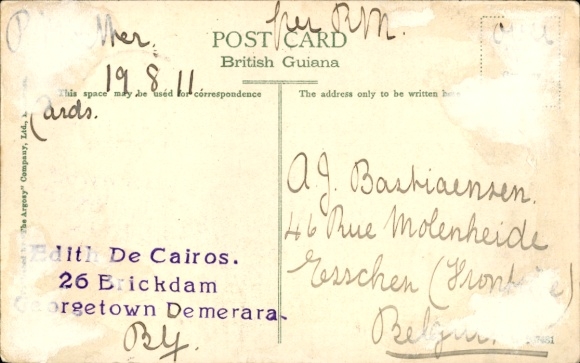 per RM.
POST CARD
British Guiana
19 8 11
This space may be used for correspondence
The address only to be written
Cards.
The Argosy" Company, Ltd.,
A. J. Bastiaensen.
46 Rue Molenheide
Esschen
Edith De Cairos.
26 Brickdam
Georgetown Demerara.